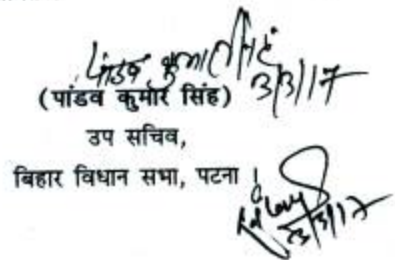 पांडव कुमार सिंह
3/3/17
(पांडव कुमार सिंह)
उप सचिव,
बिहार विधान सभा, पटना।
3/3/17